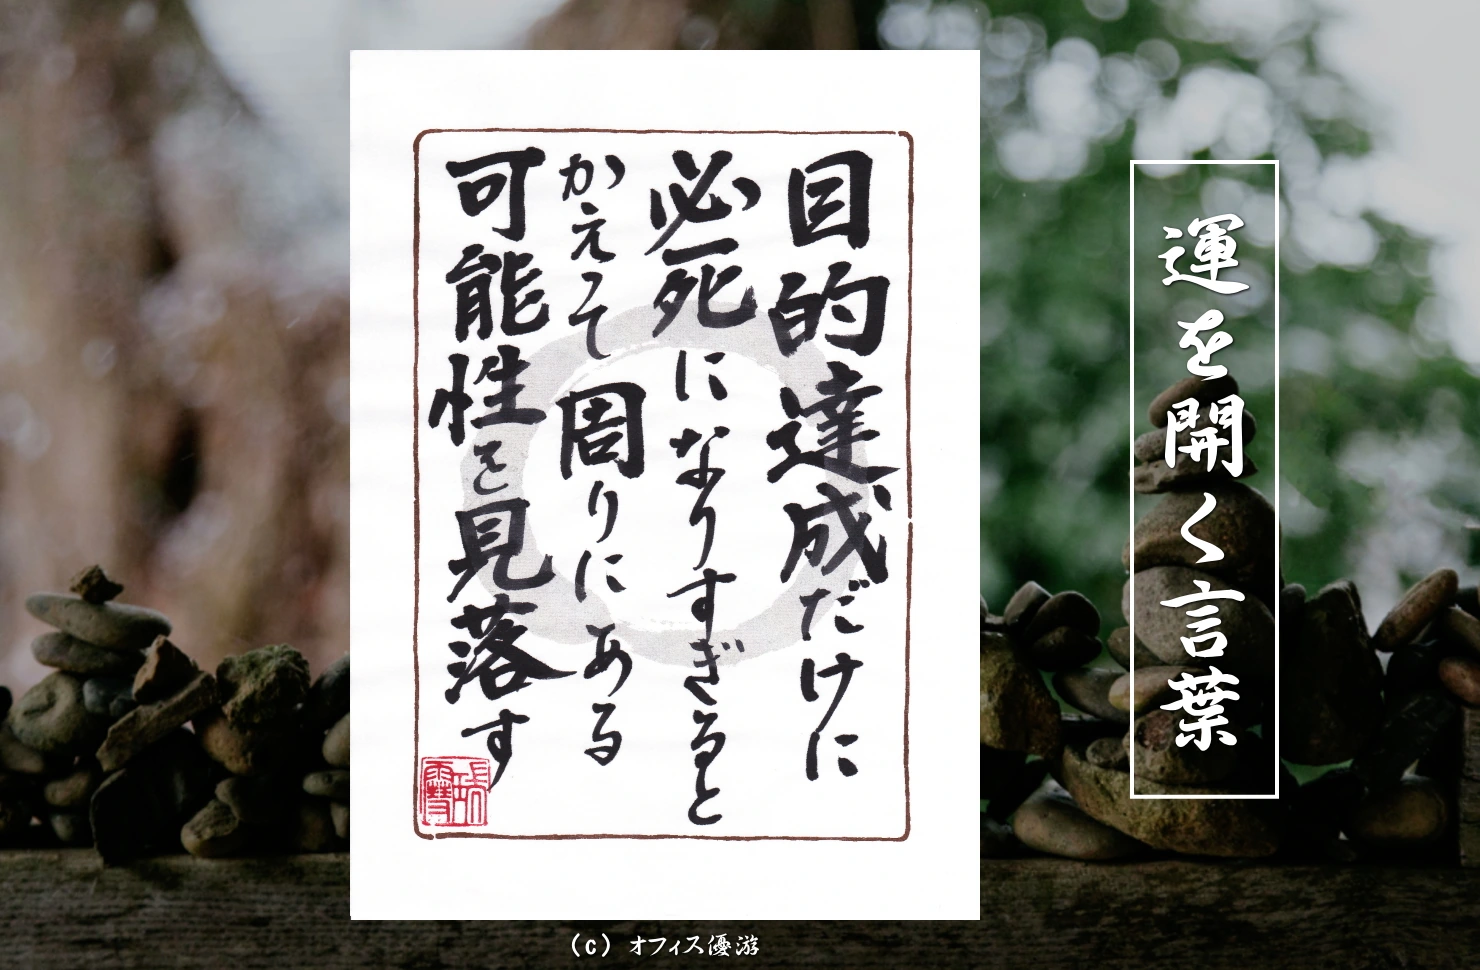 目的達成だけに
必死になりすぎると
かえって周りにある
可能性を見落す
運を開く言葉
(c) オフィス優游